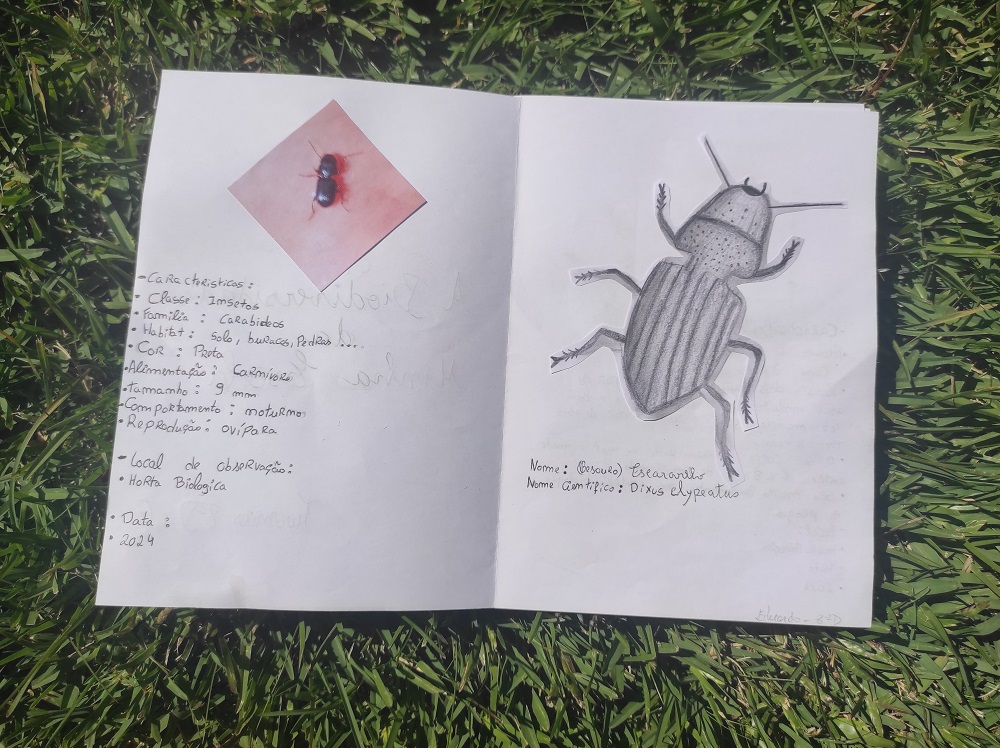 - Características:
• Classe: Insetos
• Família: Carabideos
• Habitat: Solo, buracos, Pedras ....
• Cor: Preta
• Alimentação: Carnívoro
• tamanho: 9 mm
- Comportamento: noturnos
• Reprodução: ovípara
- Local de observação:
• Horta Biologica
• Data:
• 2024
Nome: (Besouro) Escaravelho
Nome científico: Dixus clypeatus